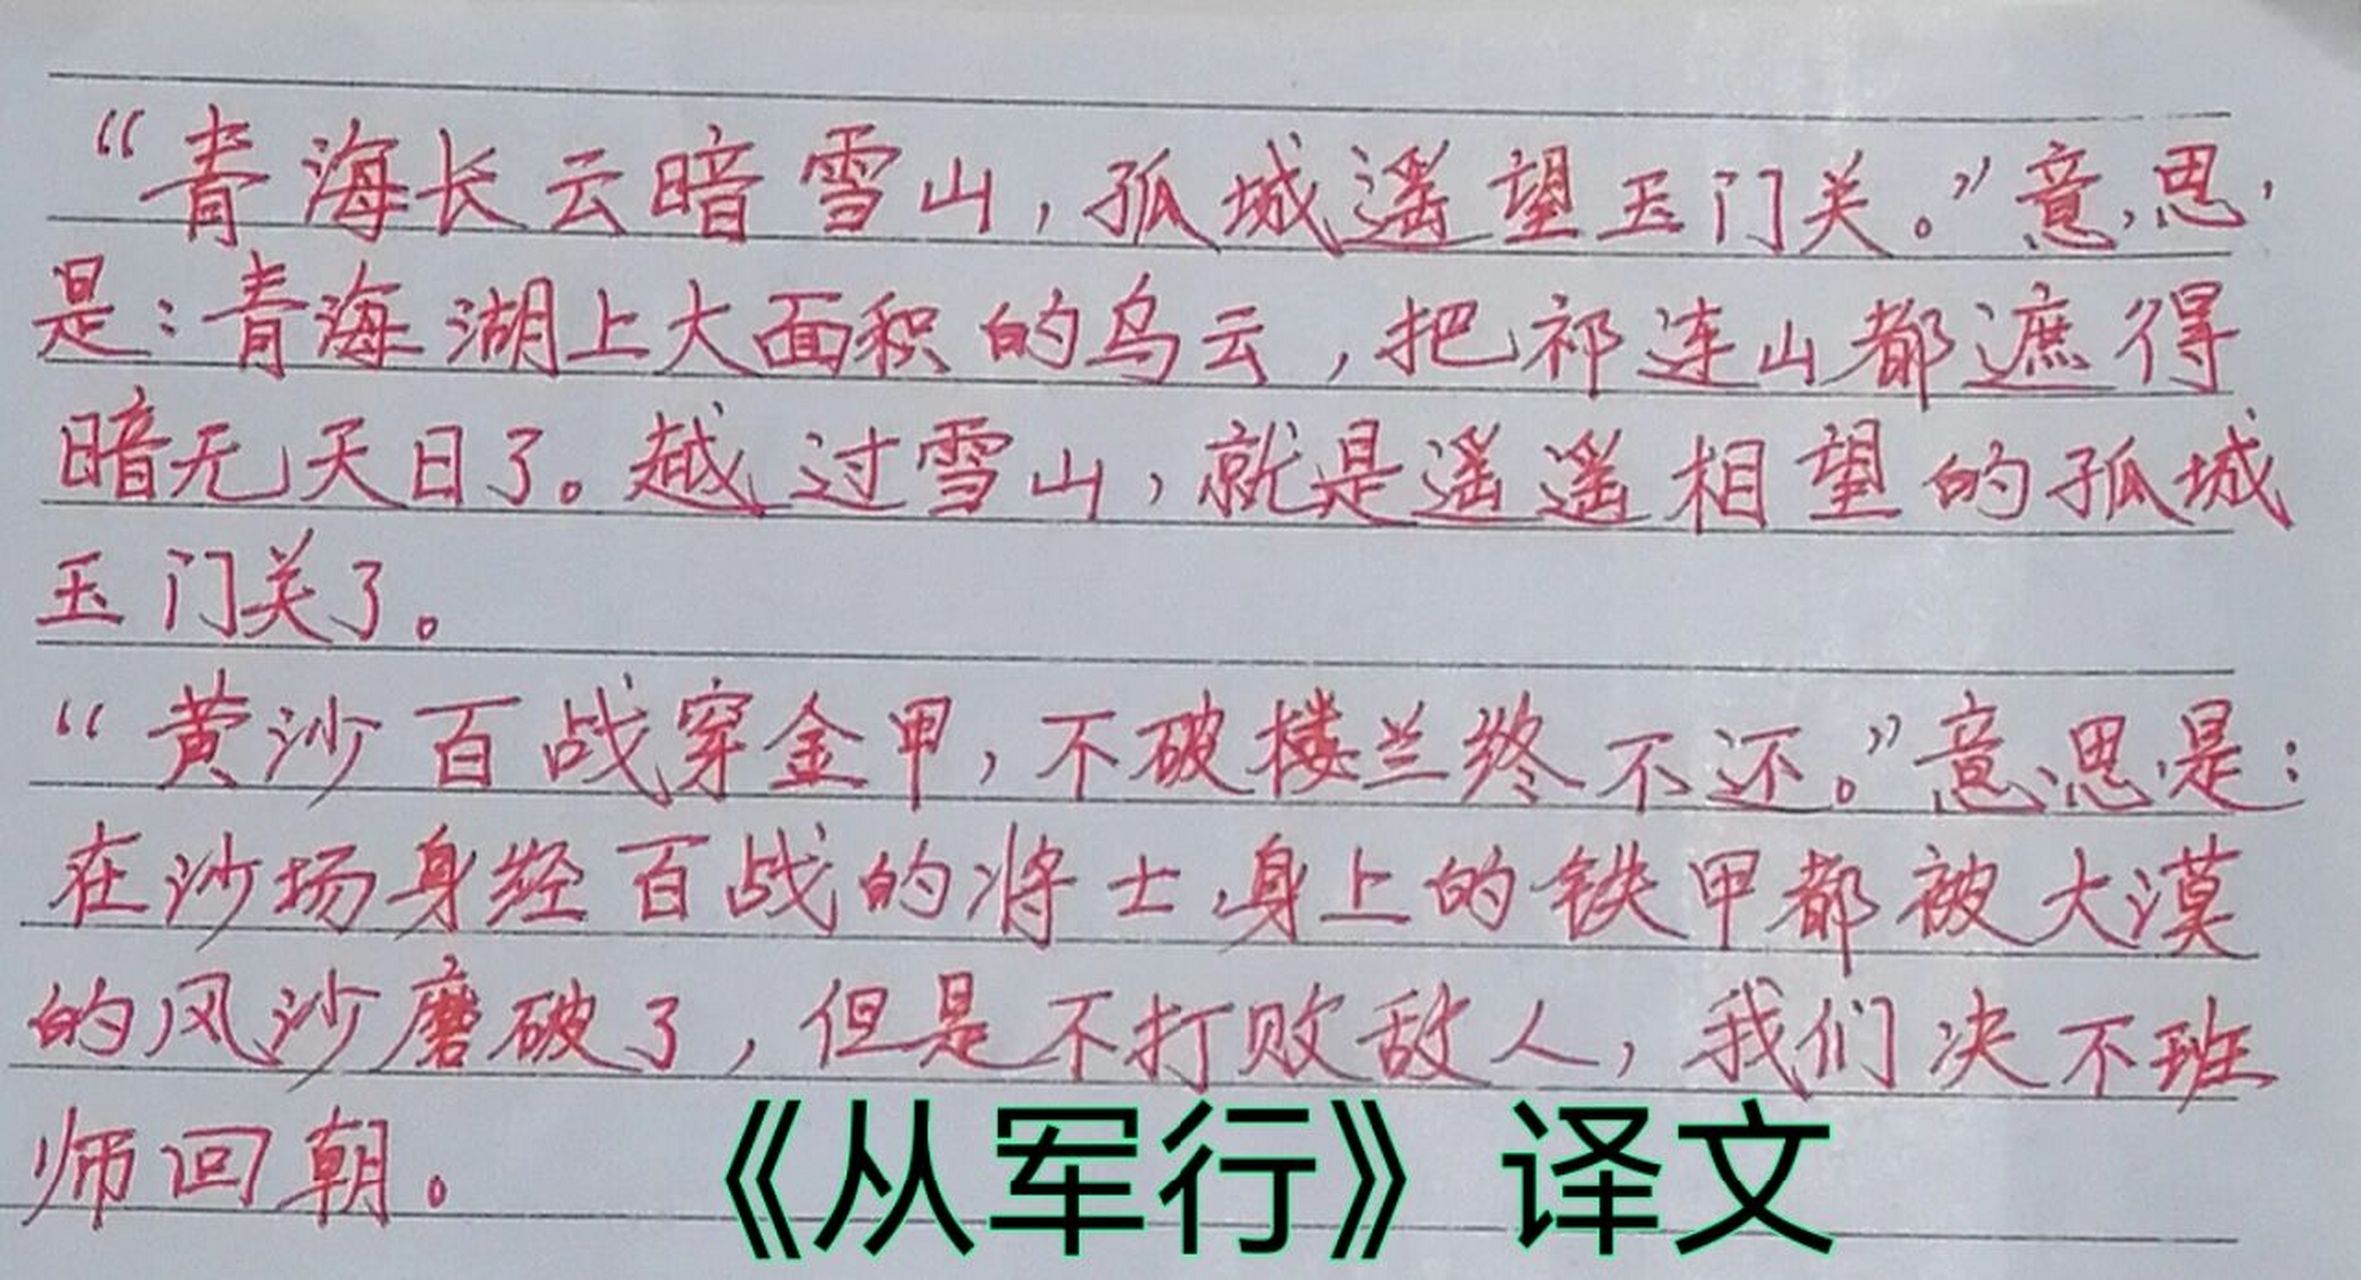 “青海长云暗雪山，孤城遥望玉门关。”意思
是：青海湖上大面积的乌云，把祁连山都遮得
暗无天日了。越过雪山，就是遥遥相望的孤城
玉门关了。
“黄沙百战穿金甲，不破楼兰终不还。”意思是：
在沙场身经百战的将士身上的铁甲都被大漠
的风沙磨破了，但是不打败敌人，我们决不班
师回朝。
《从军行》译文